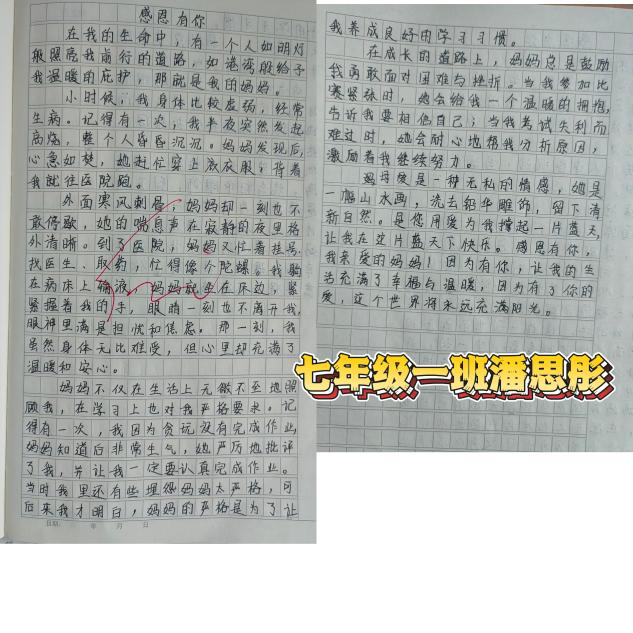 感恩有你
在我的生命中，有一个人如明灯
般照亮我前行的道路，如港湾般给予
我温暖的庇护，那就是我的妈妈。
小时候，我身体比较虚弱，经常
生病。记得有一次，我半夜突然发起
高烧，整个人昏昏沉沉。妈妈发现后，
心急如焚，她赶忙穿上衣服，背着
我就往医院跑。
外面寒风刺骨，妈妈却一刻也不
敢停歇，她的喘息声在寂静的夜里格
外清晰。到了医院，妈妈又忙着挂号、
找医生、取药，忙得像个陀螺。我躺
在病床上输液，妈妈就坐在床边，紧
紧握着我的手，眼睛一刻也不离开我，
眼神里满是担忧和焦急。那一刻，我
虽然身体无比难受，但心里却充满了
温暖和安心。
妈妈不仅在生活上无微不至地照
顾我，在学习上也对我严格要求。记
得有一次，我因为贪玩没有完成作业，
妈妈知道后非常生气，她严厉地批评
了我，并让我一定要认真完成作业。
当时我里还有些埋怨妈妈太严格，可
后来我才明白，妈妈的严格是为了让
日期： 年 月 日
我养成良好的学习习惯。
在成长的道路上，妈妈总是鼓励
我勇敢面对困难与挫折。当我参加比
赛紧张时，她会给我一个温暖的拥抱，
告诉我要相信自己；当我考试失利而
难过时，她会耐心地帮我分析原因，
激励着我继续努力。
母爱是一种无私的情感，她是
一幅山水画，洗去铅华雕饰，留下清
新自然。是您用爱为我撑起一片蓝天，
让我在这片蓝天下快乐。感恩有你，
我亲爱的妈妈！因为有你，让我的生
活充满了幸福与温暖，因为有了你的
爱，这个世界将永远充满阳光。
七年级一班潘思彤